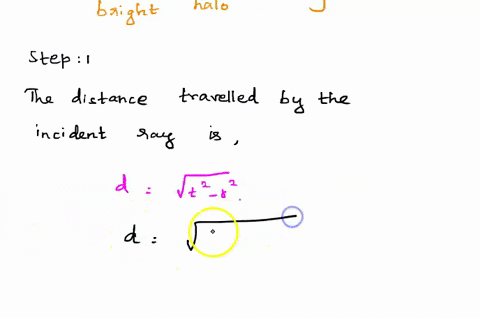 bright halo
Step:1
The distance travelled by the
incident ray is,
d = √t² - r².
d = √